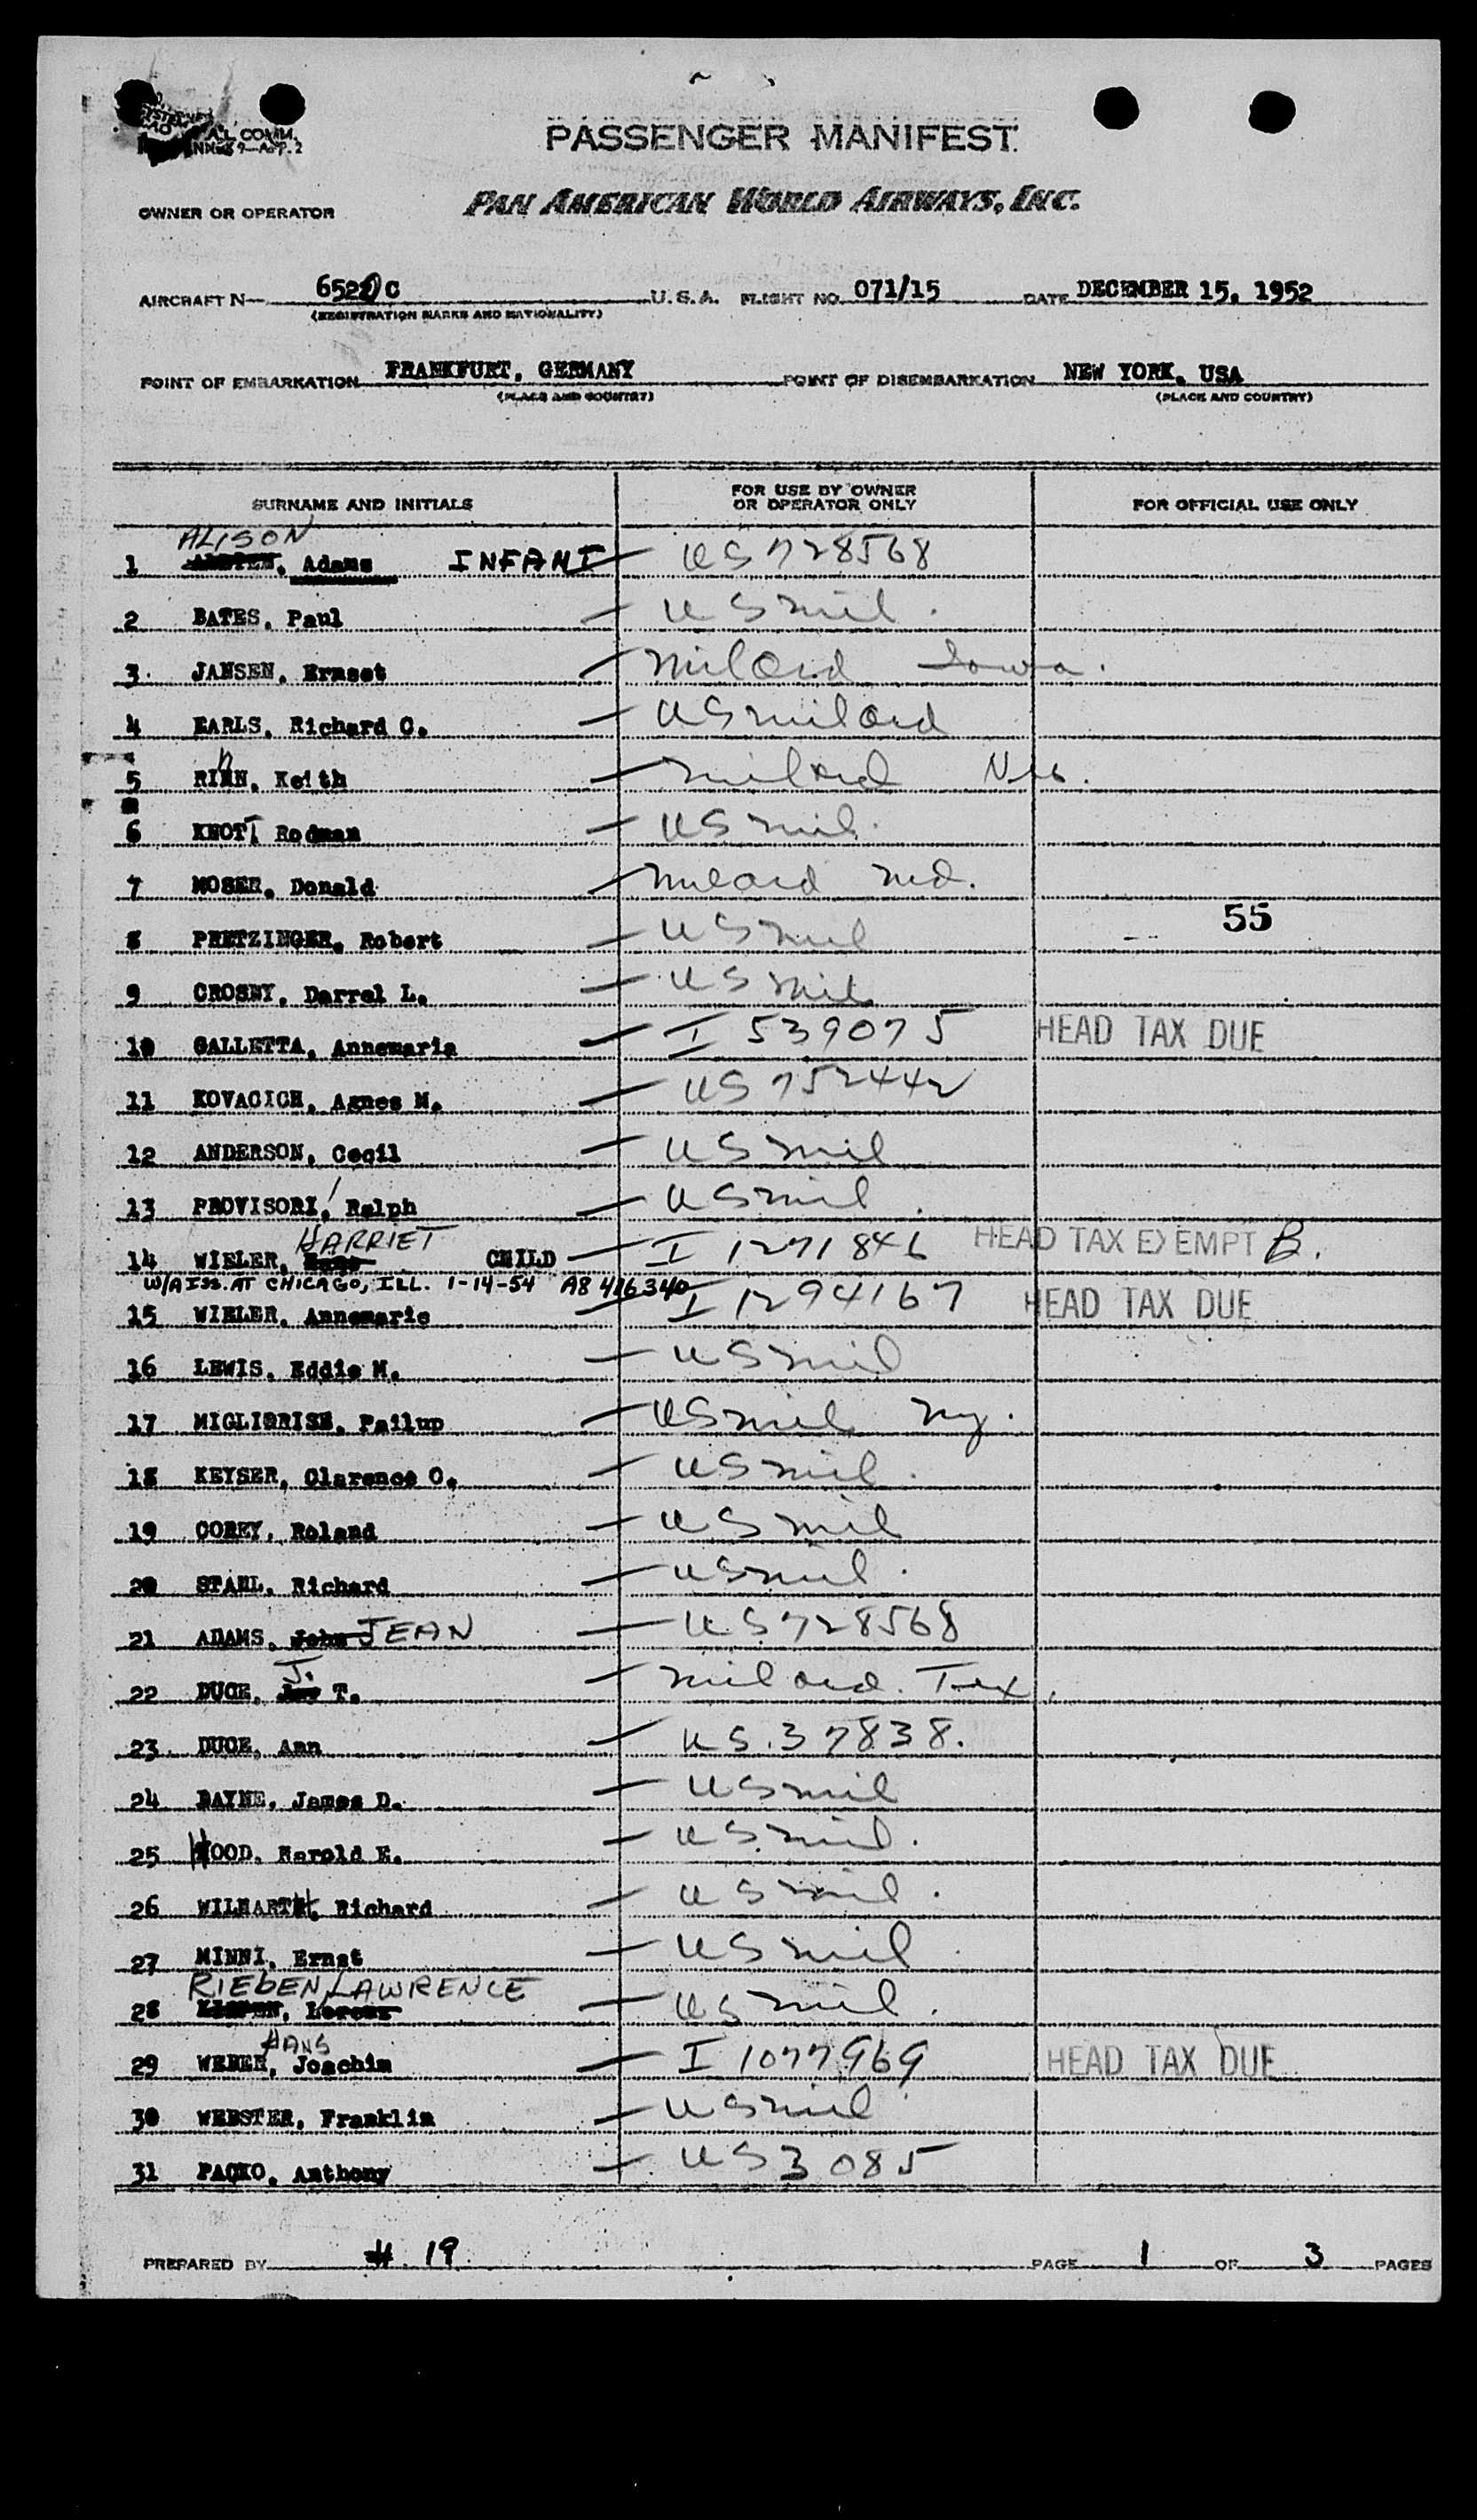 PASSENGER MANIFEST
PAN AMERICAN WORLD AIRWAYS, INC.
OWNER OR OPERATOR
AIRCRAFT N— C U.S.A. FLIGHT NO. 071/15 DATE DECEMBER 15, 1952
(REGISTRATION MARKS AND NATIONALITY)
POINT OF EMBARKATION FRANKFURT, GERMANY POINT OF DISEMBARKATION NEW YORK, USA
(PLACE AND COUNTRY) (PLACE AND COUNTRY)
SURNAME AND INITIALS FOR USE BY OWNER OR OPERATOR ONLY FOR OFFICIAL USE ONLY
ALISON
1 Adams INFANT — US 728568
2 BATES, Paul — US mil.
3. JANSEN, Ernset — mil Ord Iowa.
4 EARLS, Richard C. — US mil ord
5 Keith — mil ord
6 KNOTT Rodman — US mil.
7 MOSER, Donald — mil ord md.
55
8 PRETZINGER, Robert — US mil
9 CROSBY, Darrel L. — US mil
10 GALLETTA, Annemaria — I 539075 HEAD TAX DUE
11 KOVACICH, Agnes M. — US 752442
12 ANDERSON, Cecil — US mil
13 PROVISORI, Ralph — US mil.
HARRIET
14 WIELER, CHILD — I 1271846 HEAD TAX EXEMPT B.
W/A ISS. AT CHICAGO, ILL. 1-14-54 A8 416340
15 WIELER, Annemarie — I 1294167 HEAD TAX DUE
16 LEWIS, Eddie M. — US mil
17 MIGLIORISE, Pailup — US mil ny.
18 KEYSER, Clarence C. — US mil.
19 COREY, Roland — US mil
20 STAHL, Richard — US mil.
21 ADAMS, John JEAN — US 728568
J.
22 DUCE, Jay T. — mil ord. Tex.
23. DUCE, Ann — US. 37838.
24 BAYNE, James D. — US mil
25 HOOD, Harold E. — US mil.
26 WILHARTH, Richard — US mil.
27 MINNI, Ernst — US mil.
RIEBEN, LAWRENCE
28 — US mil.
HANS
29 WEBER, Joachim — I 1077969 HEAD TAX DUE
30 WEBSTER, Franklin — US mil
31 PACKO, Anthony — US 3085
PREPARED BY # 19 PAGE 1 OF 3 PAGES